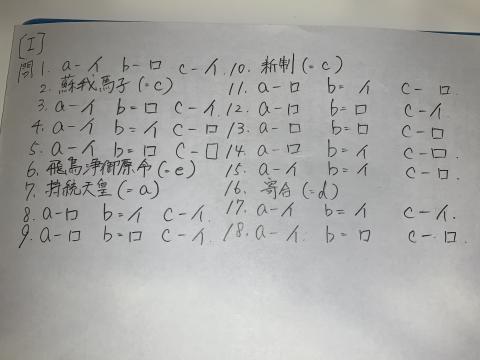 [I]
問1. a-イ b-ロ c-イ.
2. 蘇我馬子(=c)
3. a-イ b=ロ c-イ.
4. a-イ b=イ c-ロ
5. a-イ b=ロ c-ロ
6. 飛鳥浄御原令(=e)
7. 持統天皇(=a)
8. a-ロ b=イ c-イ.
9. a-ロ b=ロ c-イ.
10. 新制(=c)
11. a-ロ b=イ c-ロ.
12. a-ロ b=ロ c-イ.
13. a-ロ b=ロ c-ロ
14. a-ロ b=イ c-ロ.
15. a-イ b=イ c-ロ.
16. 寄合(=d)
17. a-イ b=イ c-イ.
18. a-イ. b=ロ c-ロ.